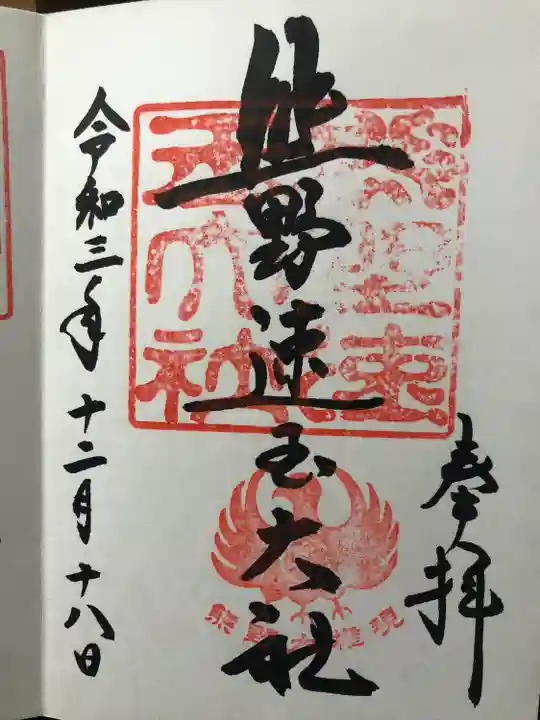 奉拝
熊野速玉大社
令和三年十二月十八日
熊野大権現